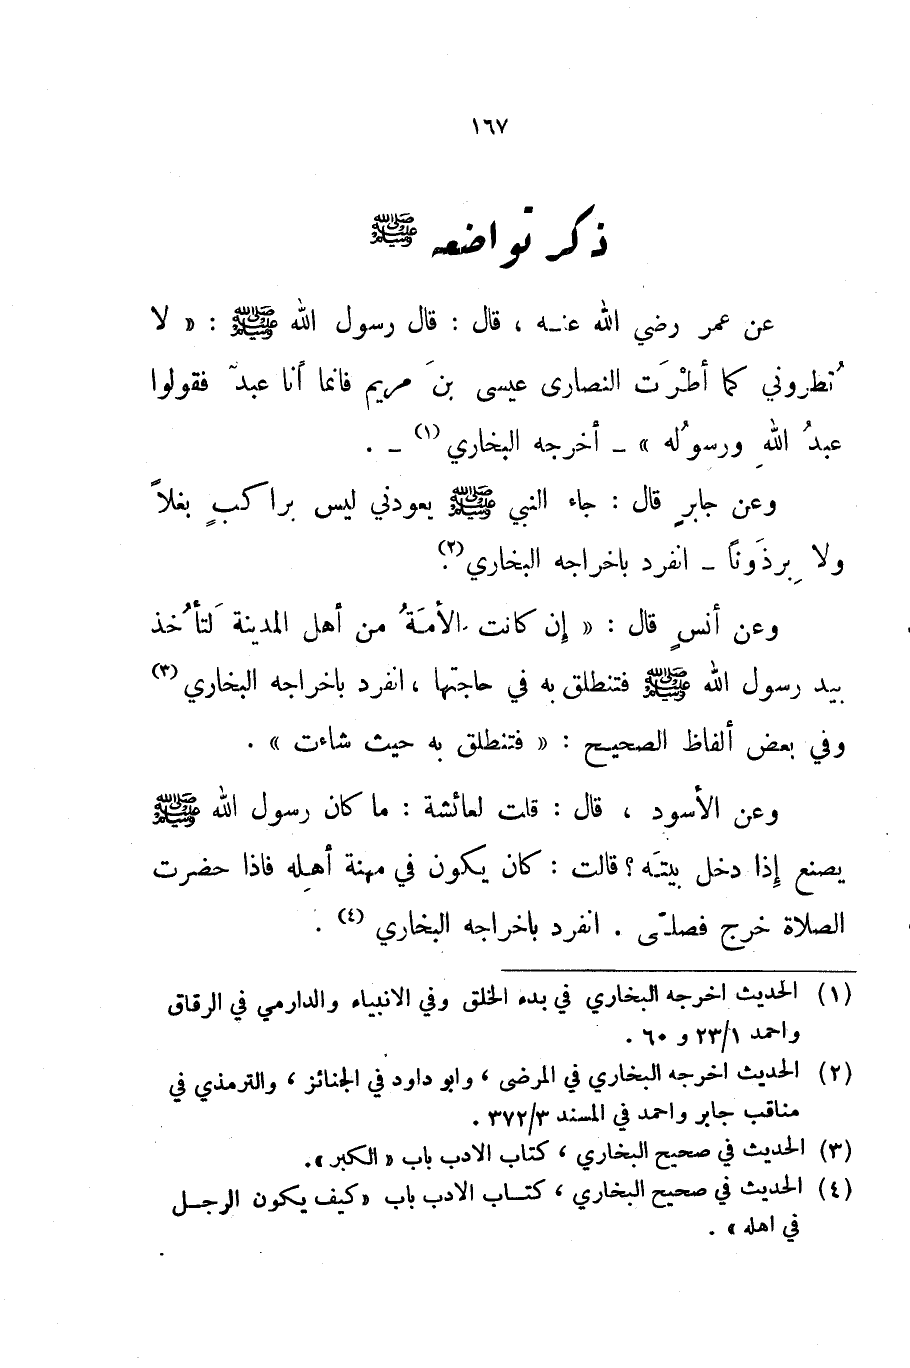 ١٦٧
ذكر تواضعه ﷺ
عن عمر رضي الله عنه ، قال : قال رسول الله ﷺ : « لا
تُطروني كما أطْرَت النصارى عيسى بنَ مريم فانما أنا عبدٌ فقولوا
عبدُ اللهِ ورسولُه » ـ أخرجه البخاري (١) ـ .
وعن جابرٍ قال : جاء النبي ﷺ يعودني ليس براكبٍ بغلاً
ولا بِرذَوناً ـ انفرد باخراجه البخاري (٢).
وعن أنسٍ قال : « إن كانت الأمَةُ من أهل المدينة لَتأخُذ
بيد رسول الله ﷺ فتنطلق به في حاجتها ، انفرد باخراجه البخاري (٣)
وفي بعض ألفاظ الصحيح : « فتنطلق به حيث شاءت » .
وعن الأسود ، قال : قلت لعائشة : ما كان رسول الله ﷺ
يصنع إذا دخل بيتَه ؟ قالت : كان يكون في مهنة أهله فاذا حضرت
الصلاة خرج فصلّى . انفرد باخراجه البخاري (٤) .
(١) الحديث اخرجه البخاري في بدء الخلق وفي الانبياء والدارمي في الرقاق
واحمد ٢٣/١ و ٦٠ .
(٢) الحديث اخرجه البخاري في المرضى ، وابو داود في الجنائز ، والترمذي في
مناقب جابر واحمد في المسند ٣٧٢/٣ .
(٣) الحديث في صحيح البخاري ، كتاب الادب باب « الكبر ».
(٤) الحديث في صحيح البخاري ، كتـاب الادب باب «كيف يكون الرجـل
في اهله » .